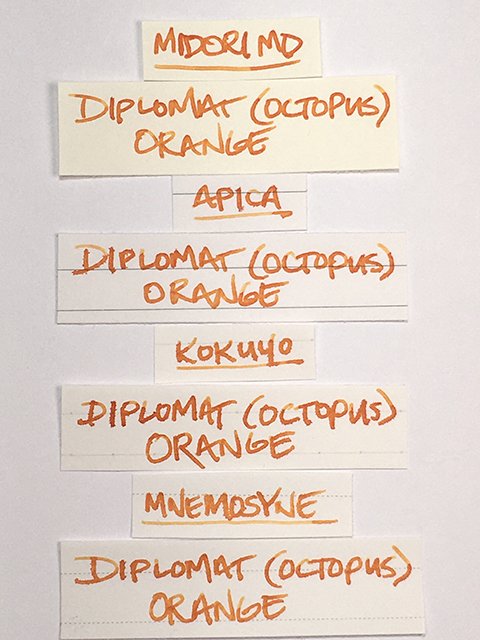 MIDORI MD
DIPLOMAT (OCTOPUS)
ORANGE
APICA
DIPLOMAT (OCTOPUS)
ORANGE
KOKUYO
DIPLOMAT (OCTOPUS)
ORANGE
MNEMOSYNE
DIPLOMAT (OCTOPUS)
ORANGE